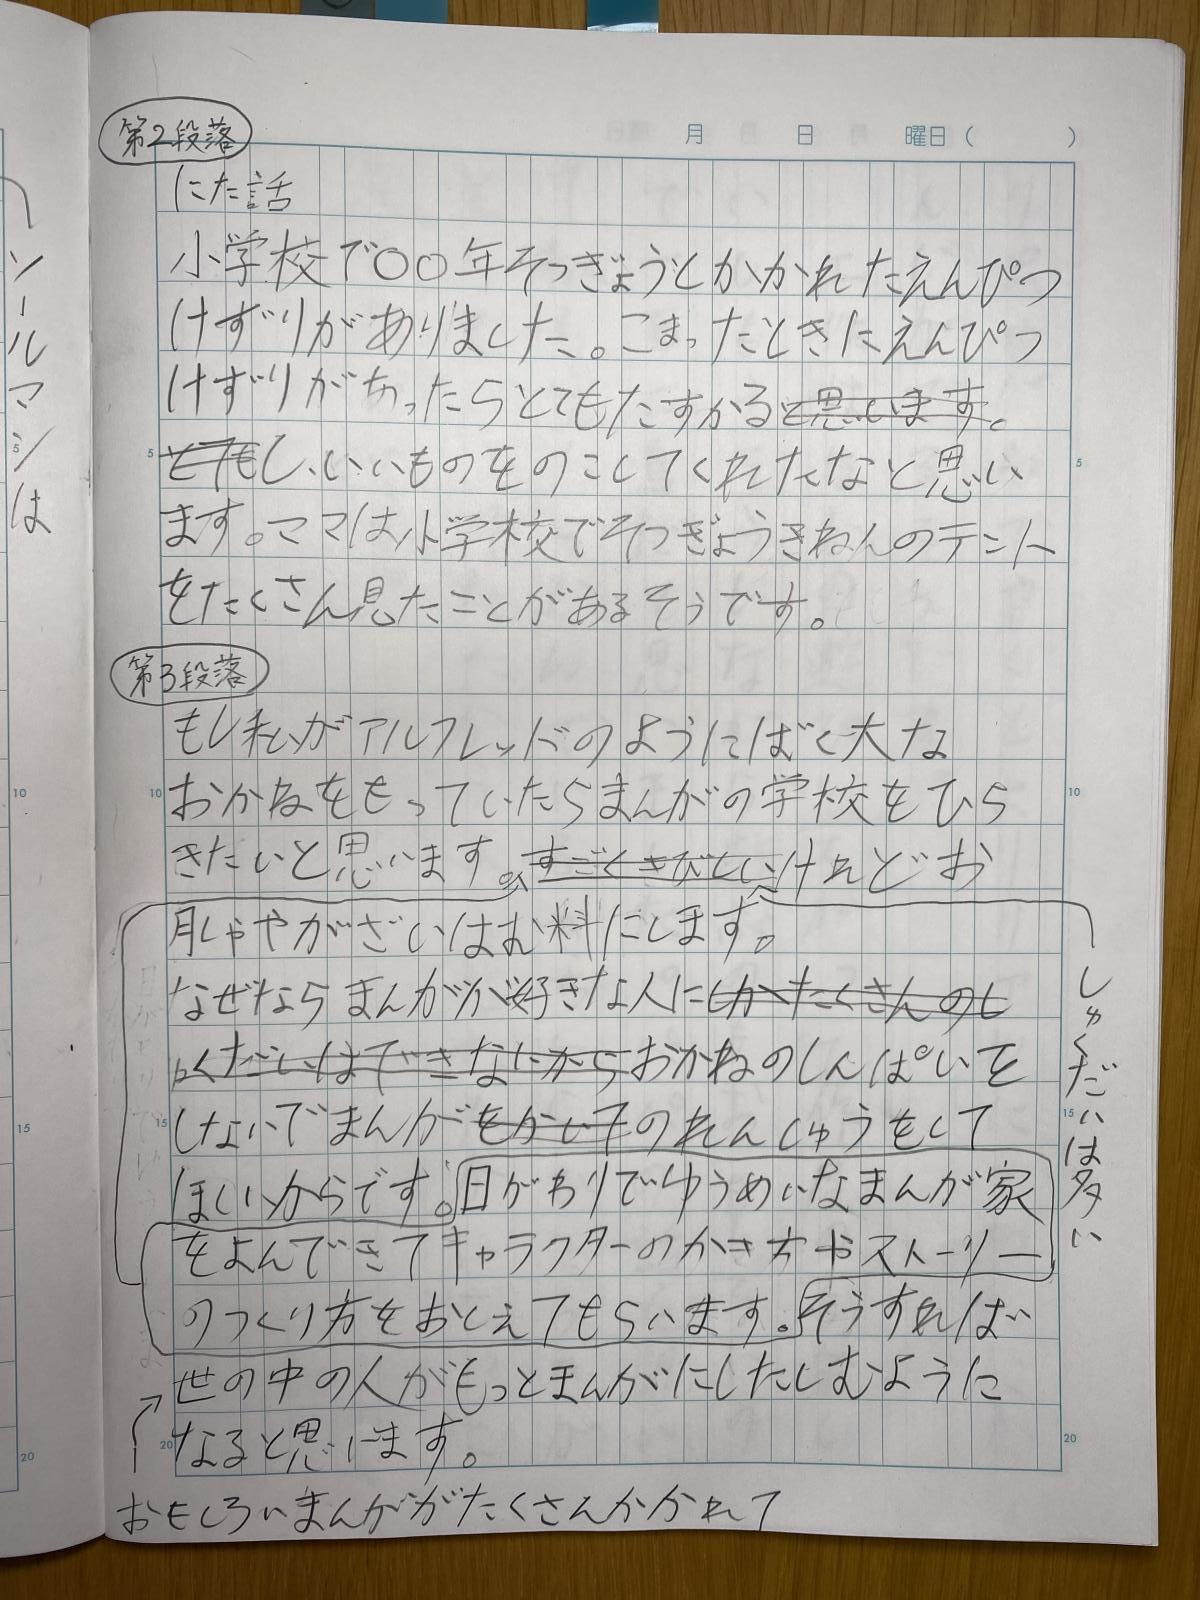 ソールマンは
月 日 曜日( )
第2段落
にた話
小学校で〇〇年そつぎょうとかかれたえんぴつ
けずりがありました。こまったときにえんぴつ
けずりがあったらとてもたすかると思います。
とてもし、いいものをのこしてくれたなと思い
ます。ママは小学校でそつぎょうきねんのテント
をたくさん見たことがあるそうです。
第3段落
もし私がアルフレッドのようにばく大な
おかねをもっていたらまんがの学校をひら
きたいと思います。すごくきびしいけれどお
月しゃやがざいはむ料にします。
なぜならまんがが好きな人にしかたくさんのし
ゅくだいはできないからおかねのしんぱいを
しないでまんがをかいてのれんしゅうをして
ほしいからです。日がわりでゆうめいなまんが家
をよんできてキャラクターのかき方やストーリー
のつくり方をおとえてもらいます。そうすれば
世の中の人がもっとまんがにしたしむように
なると思います。
おもしろいまんががたくさんかかれて
しゅくだいは多い
5
10
15
20
5
10
15
20
5
10
15
20